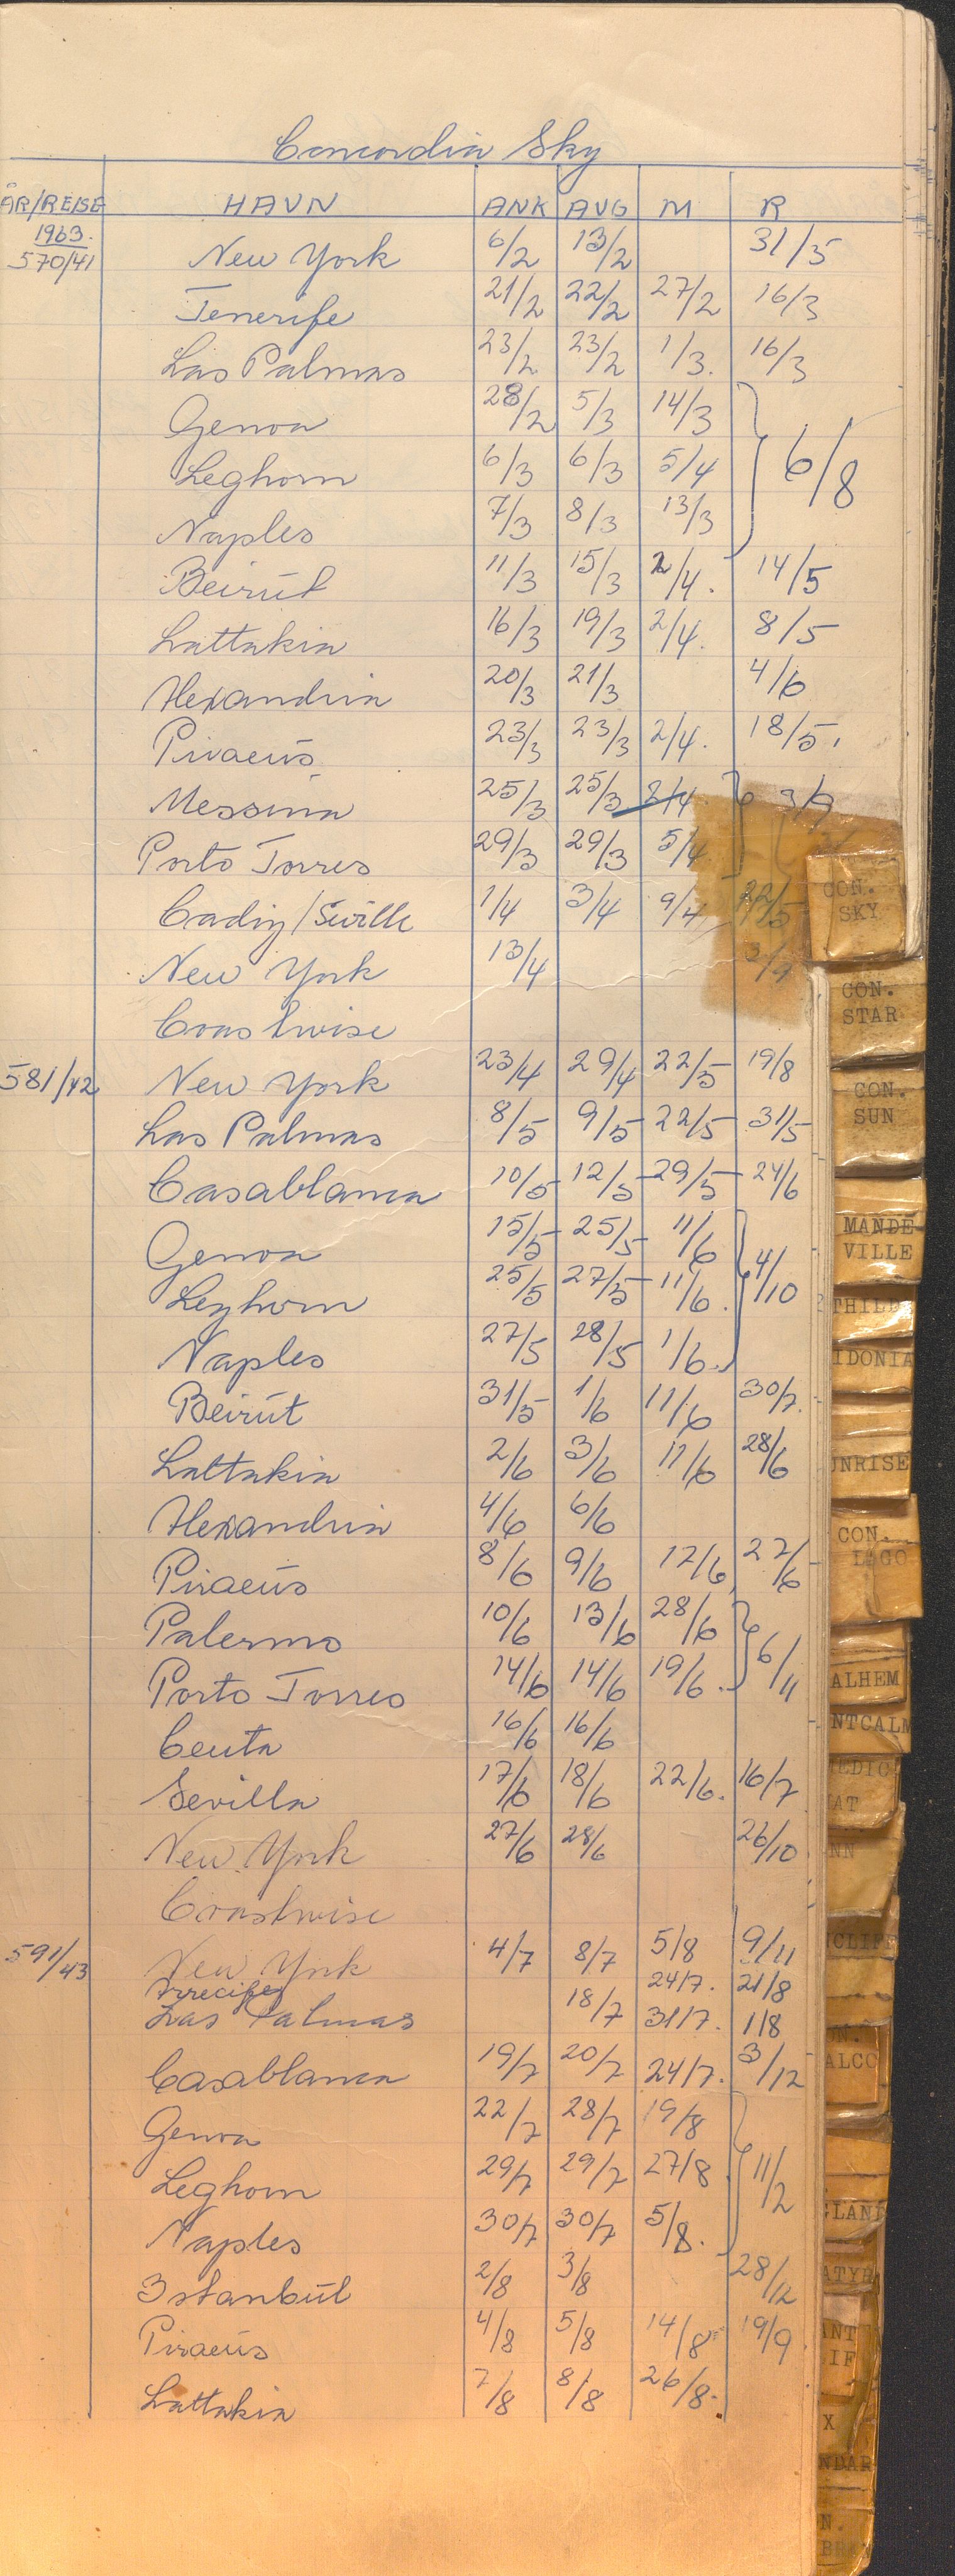 Concordia Sky
ÅR/REISE HAVN ANK AVG M R
1963.
570/41 New York 6/2 13/2 31/5
Tenerife 21/2 22/2 27/2 16/3
Las Palmas 23/2 23/2 1/3. 16/3
Genoa 28/2 5/3 14/3
Leghorn 6/3 6/3 5/4 6/8
Naples 7/3 8/3 13/3
Beirút 11/3 15/3 2/4. 14/5
Lattakia 16/3 19/3 2/4. 8/5
Alexandria 20/3 21/3 4/6
Piraeús 23/3 23/3 2/4. 18/5.
Messina 25/3 25/3 2/4 3/9
Porto Torres 29/3 29/3 5/4
Cadiz/Seville 1/4 3/4 9/4 22/5
New York 13/4 3/9
Coastwise
581/42 New York 23/4 29/4 22/5 19/8
Las Palmas 8/5 9/5 22/5 31/5
Casablanca 10/5 12/5 29/5 24/6
Genoa 15/5 25/5 11/6
Leghorn 25/5 27/5 11/6. 4/10
Naples 27/5 28/5 1/6.
Beirút 31/5 1/6 11/6 30/7.
Lattakia 2/6 3/6 11/6 28/6
Alexandria 4/6 6/6
Piraeús 8/6 9/6 17/6 27/6
Palermo 10/6 13/6 28/6
Porto Torres 14/6 14/6 19/6. 6/11
Ceuta 16/6 16/6
Sevilla 17/6 18/6 22/6. 16/7
New York 27/6 28/6 26/10
Coastwise
591/43 New York 4/7 8/7 5/8 9/11
Arrecifes 24/7. 21/8
Las Palmas 18/7 31/7. 1/8
Casablanca 19/7 20/7 24/7. 3/12
Genoa 22/7 28/7 19/8
Leghorn 29/7 29/7 27/8 11/2
Naples 30/7 30/7 5/8.
Istanbúl 2/8 3/8 28/12
Piraeús 4/8 5/8 14/8 19/9
Lattakia 7/8 8/8 26/8.
CON.
SKY
CON.
STAR
CON.
SUN
MANDE
VILLE
THILD
IDONIA
UNRISE
CON.
LAGO
ALHEM
NTCALM
MEDIO
AT
NN
CLIFF
ON.
ALCO
GLAND
ATYR
INT
IF
X
NDAR
N.